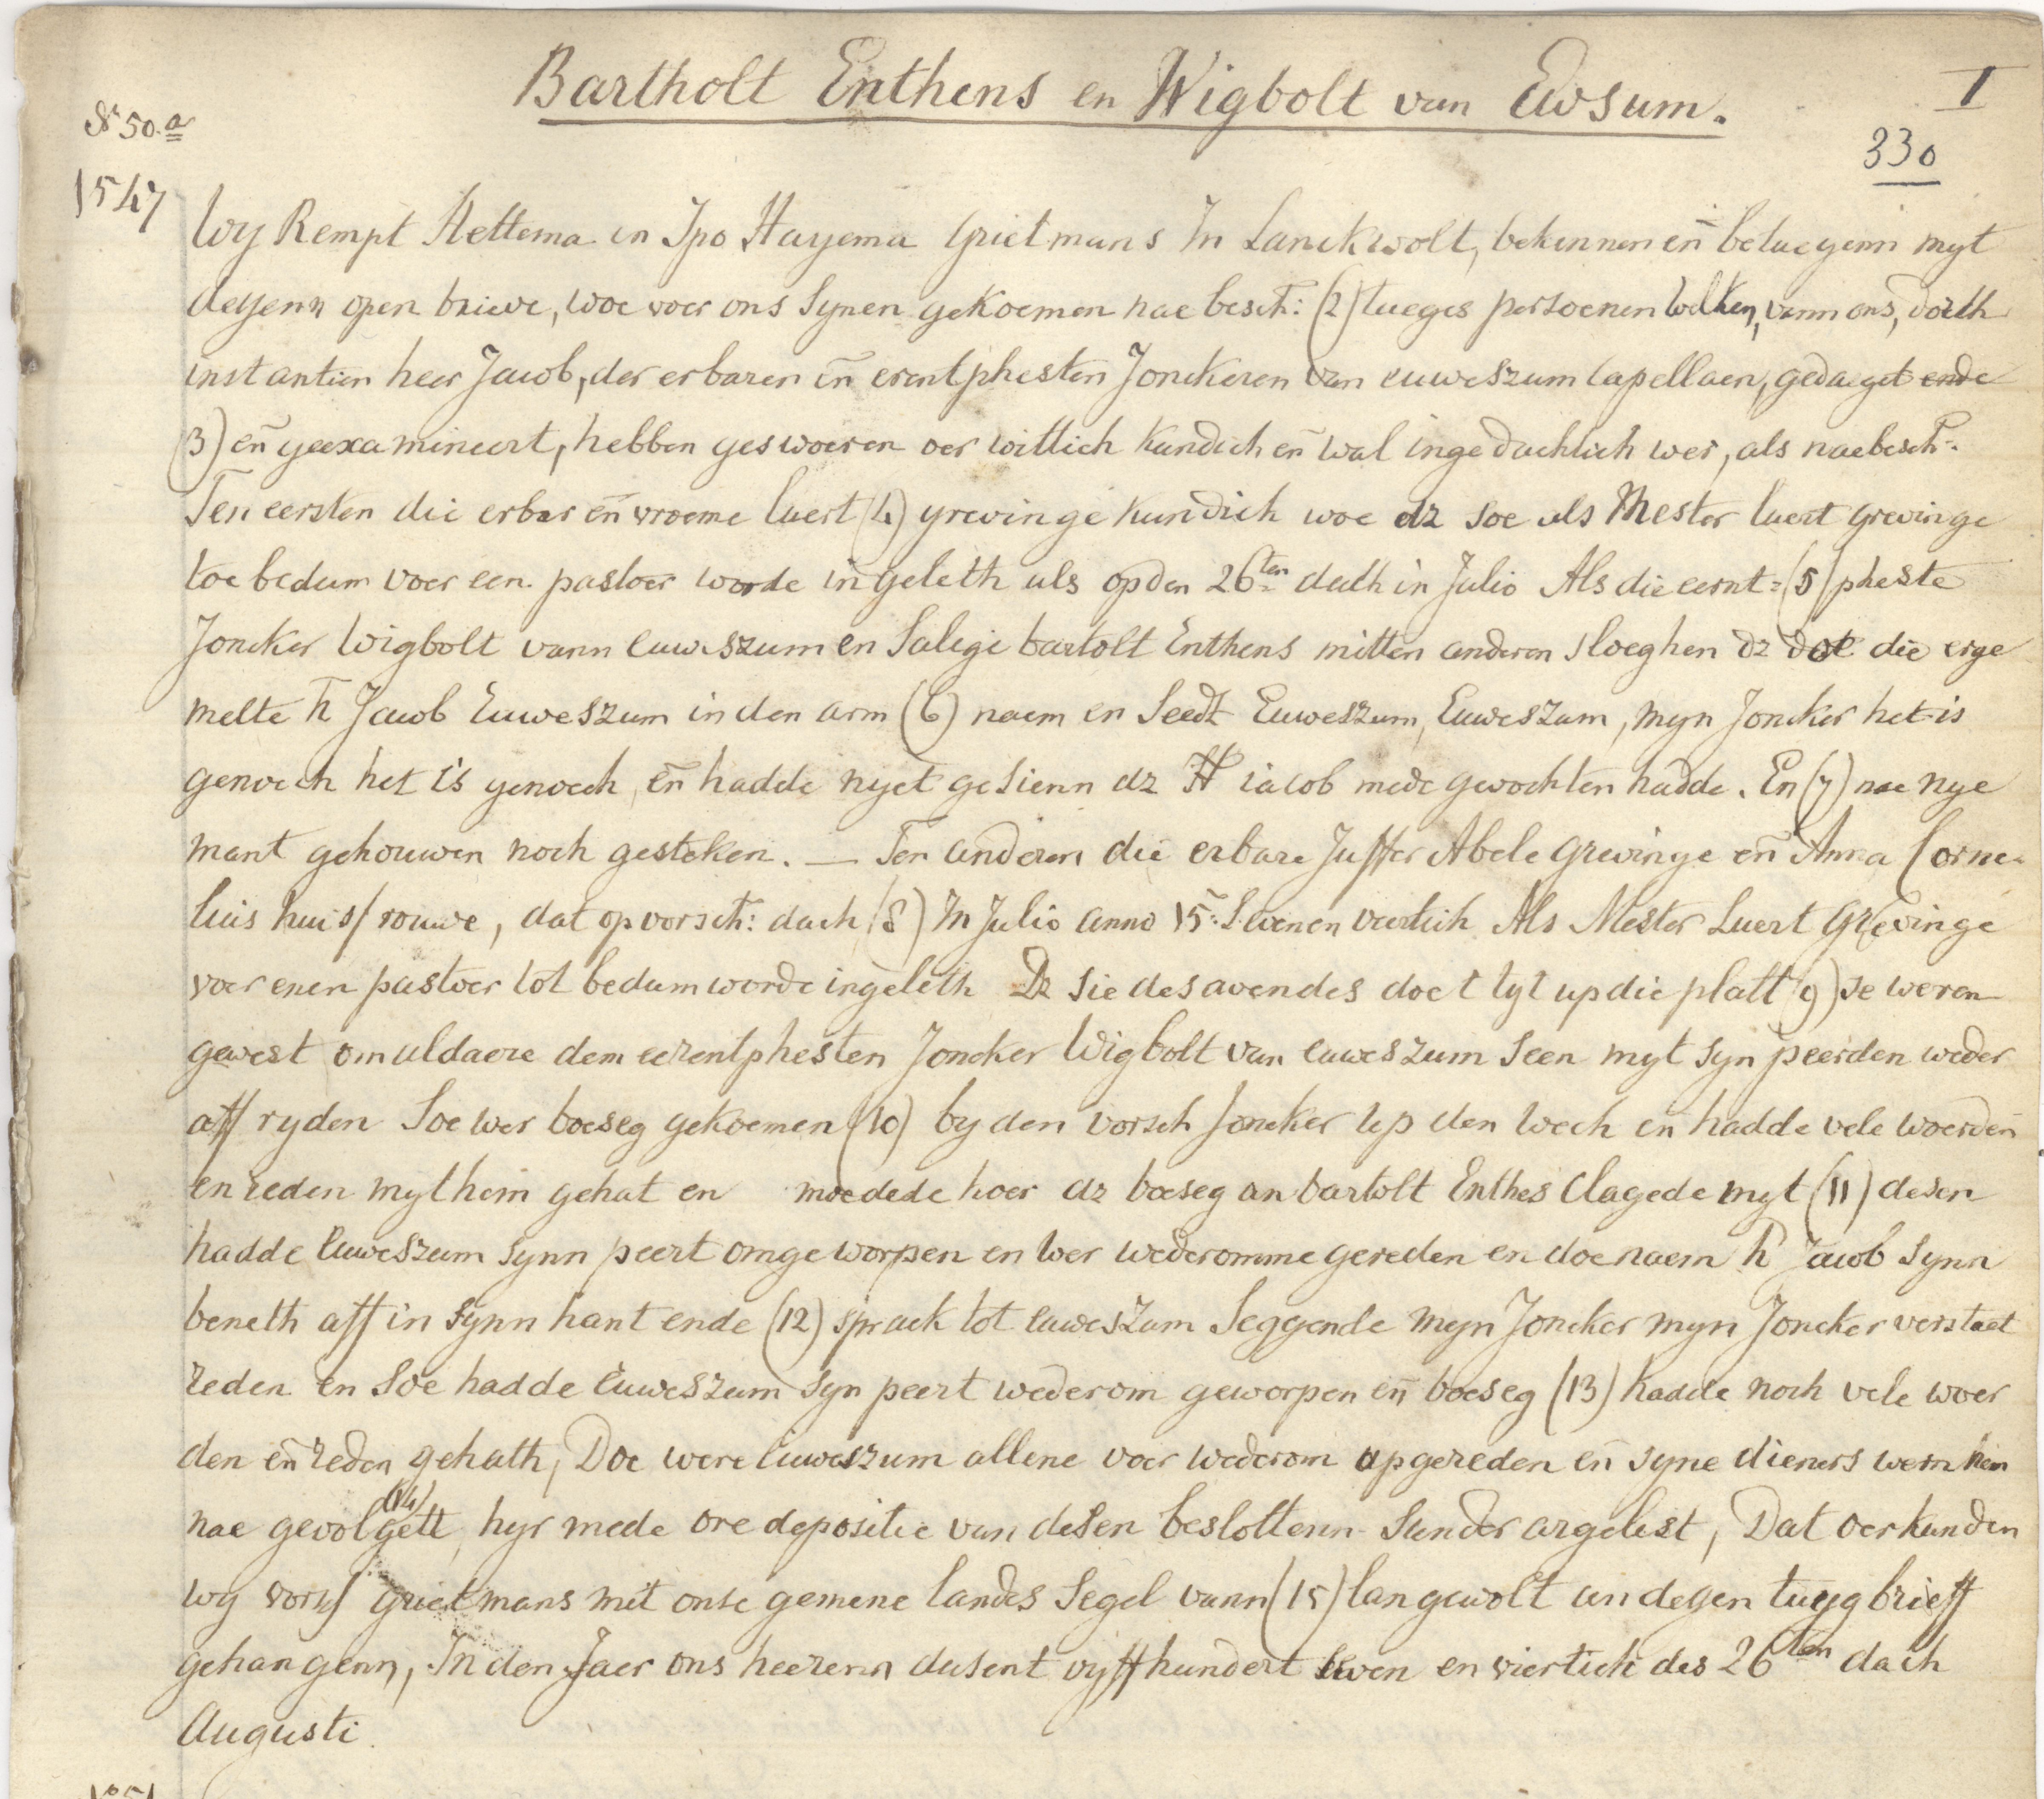 Bartholt Enthens en Wigbolt van Ewsum.
I
No 50.a
330
1547
Wy Rempt Hettema en Ipo Hayema Grietmans In Lanckwolt, bekennen en̄ betuegenn myt
desenn open brieve, woe voer ons synen gekoemen nae besch: (2) tueges persoenen welken, vann ons, doith
instantien heer Jacob, der erbaren en̄ erentphesten Jonckeren van euweszum Capellaen, gedaeget ende
(3) en̄ geexamineert, hebben geswoeren oer wittich kundich en̄ wal ingedachtich wer, als naebesch:
Ten eersten die erbar en̄ vroeme luert (4) grevinge kundich woe dz soe als Mester luert grevinge
toe bedum voer een pastoer worde in geleth als op den 26ten dath in Julio Als die eernt= (5) pheste
Joncker Wigbolt vann euweszum en Salige bartolt Enthens mitten anderen sloeghen dz doe die erge
melte h̄ Jacob Euweszum in den arm (6) naem en Seedt Euweszum, Euweszum, myn Joncker het is
genoech het is genoech, en̄ hadde nyet gesienn dz H iacob mede gevochten hadde. En (7) nae nye
mant gehouwen noch gesteken. — Ten anderen die erbare Juffer Abele grevinge en̄ Anna Corne-
luis huisfrouwe, dat op vorsch: dach (8) In Julio anno 15: Sevenen veertich Als Mester Luert Grevinge
voer enen pastoer tot bedum worde ingeleth Dz sie des avendes doe t tyt up die platt (9) se weren
gewest om aldaere dem eerentphesten Joncker Wigbolt van euweszum seen myt syn peerden weder
aff ryden Soe wer boeseg gekoemen (10) by den vorsch Joncker up den wech en̄ hadde vele woerden
en reden myt hem gehat en moedede hoer dz boeseg an bartolt Enthes Clagede myt (11) desen
hadde euweszum synn peert omgeworpen en wer wederomme gereden en doe naem h Jacob synn
beneth aff in synn hant ende (12) sprack tot euweszum Seggende myn Joncker myn Joncker verstaet
reden en Soe hadde Euweszum syn peert wederom geworpen en̄ boeseg (13) hadde noch vele woer
den en̄ reden gehath, Doe were Euweszum allene voer wederom opgereden en̄ syne dieners wern hem
nae gevolgett (14), hyr mede ore depositie van desen beslottenn Sunder argelist, Dat oerkunden
wy vorsch grietmans mit onse gemene landes Segel vann (15) langewolt an desen tuygbrieff
gehangenn, In den Jaer ons heerenn dusent vyffhundert seven en viertich des 26ten dach
Augusti.